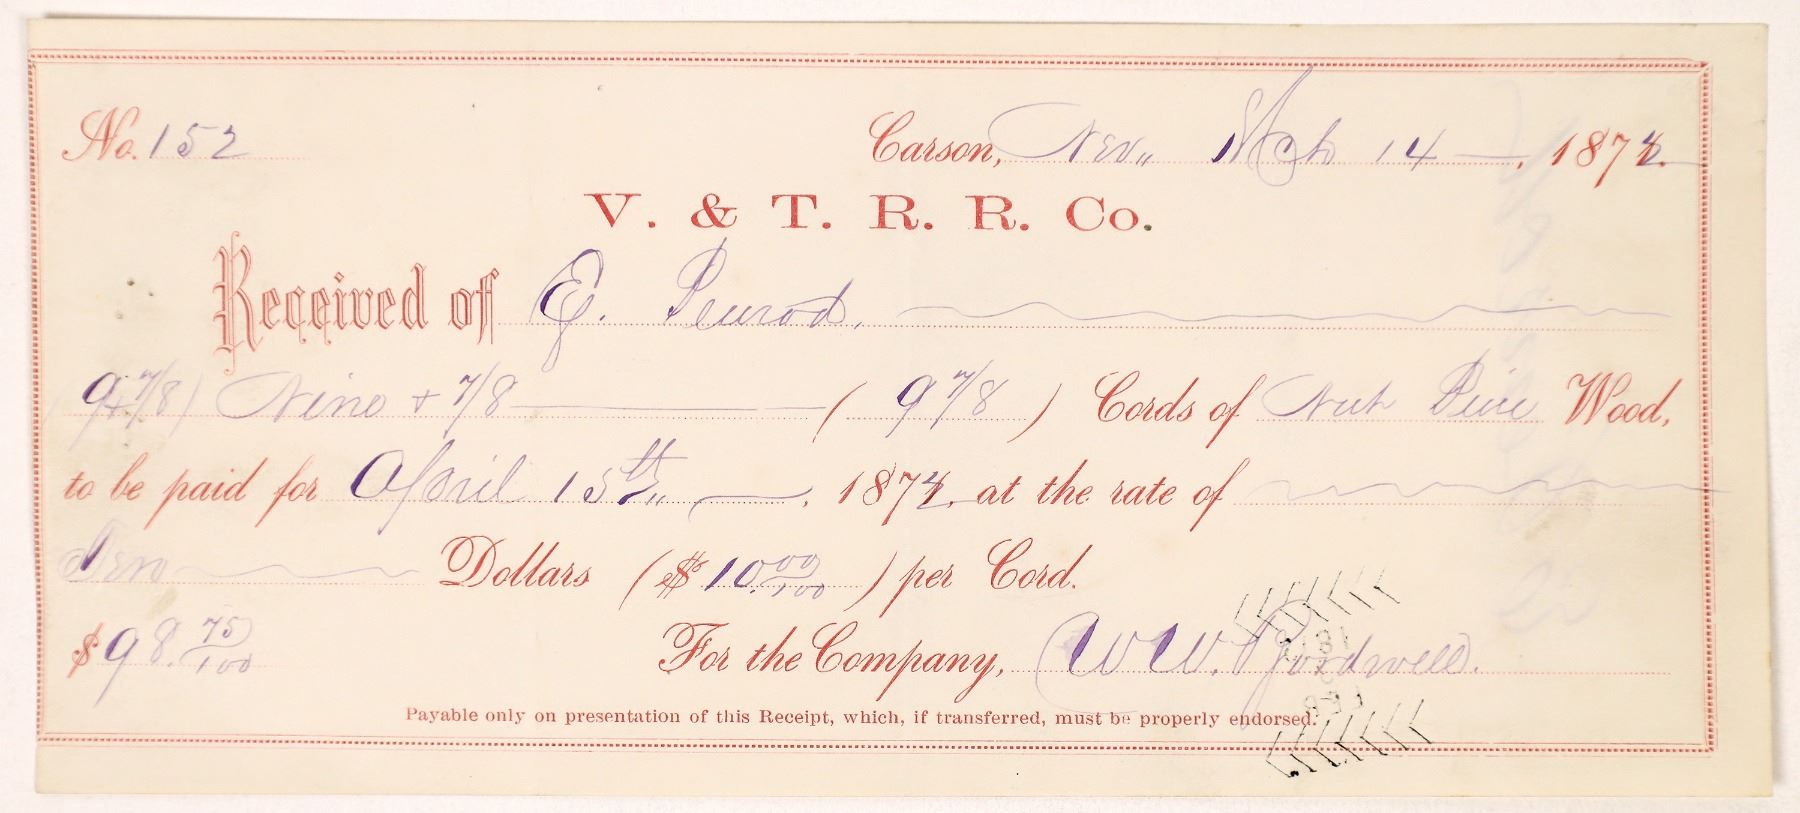 No. 152 Carson, Nev,, Mch 14 — , 1872.
V. & T. R. R. Co.
Received of E. Penrod.
(9 7/8) Nine + 7/8 — ( 9 7/8 ) Cords of Nut Pine Wood,
to be paid for April 15th,, — , 1872. at the rate of
Ten Dollars ($ 10. 00/100 ) per Cord.
$ 98. 75/100 For the Company, W W. Bordwell.
Payable only on presentation of this Receipt, which, if transferred, must be properly endorsed.